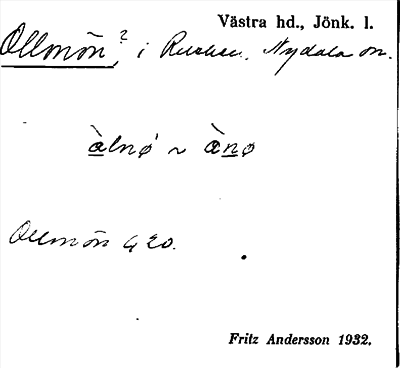 Västra hd., Jönk. l.
Ollmön?, i Rusken. Nydala sn.
àlnø ~ ànø
Ollmön G 20.
Fritz Andersson 1932.